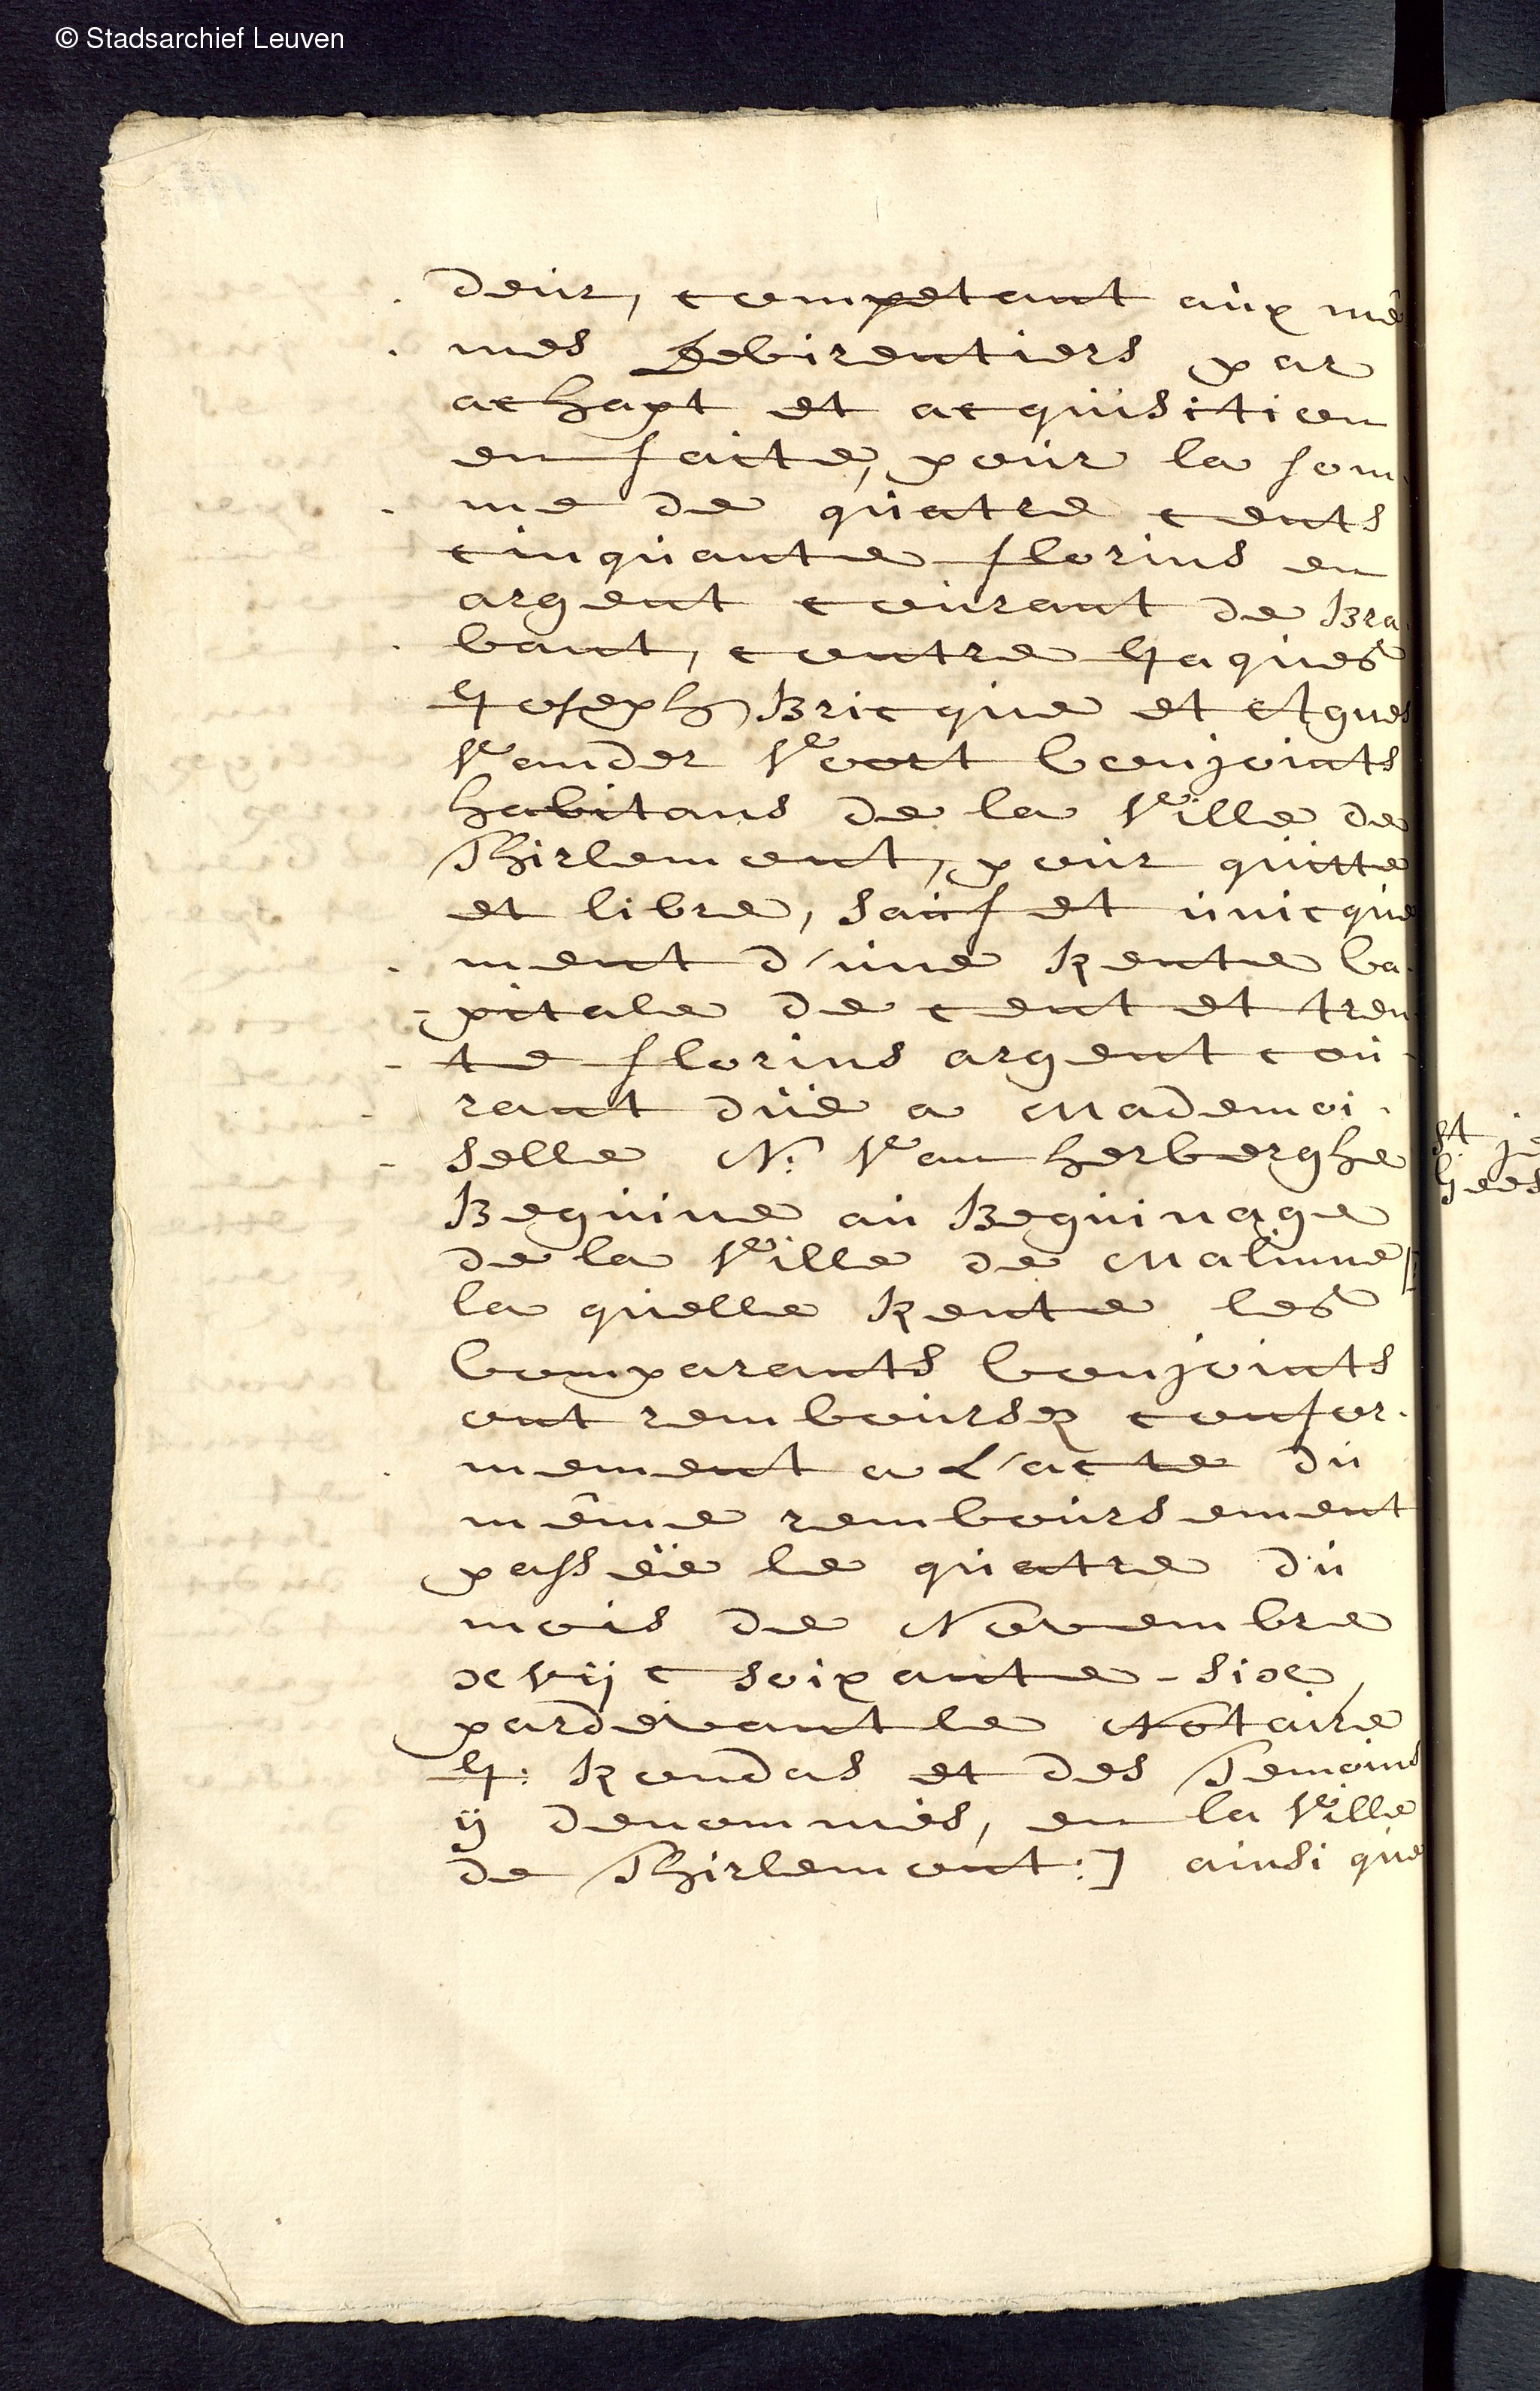 © Stadsarchief Leuven
deur, competant aux mê
mes Debirentiers par
achapt et acquisition
en faite, pour la som
me de quatre cents
cinquante florins en
argent courant de Bra
bant, contre Jaques
Joseph Bricque et Agnes
Vander Voort Conjoints
habitans de la Ville de
Thirlemont, pour quitte
et libre, sauf et unicque
ment d'une Rente Ca
pitale de cent et tren
te florins argent cou
rant düe a Mademoi
selle N: Van herberghe
Beguine au Beguinage
de la Ville de Malinne
la quelle Rente les
Comparants Conjoints
ont remboursez confor
mement a L'acte du
même remboursement
passëe le quatre du
mois de Novembre
xvijc soixante-six
pardevant le Notaire
J: Rondas et des Temoins
ÿ denommés, en la Ville
de Thirlemont:] ainsi que